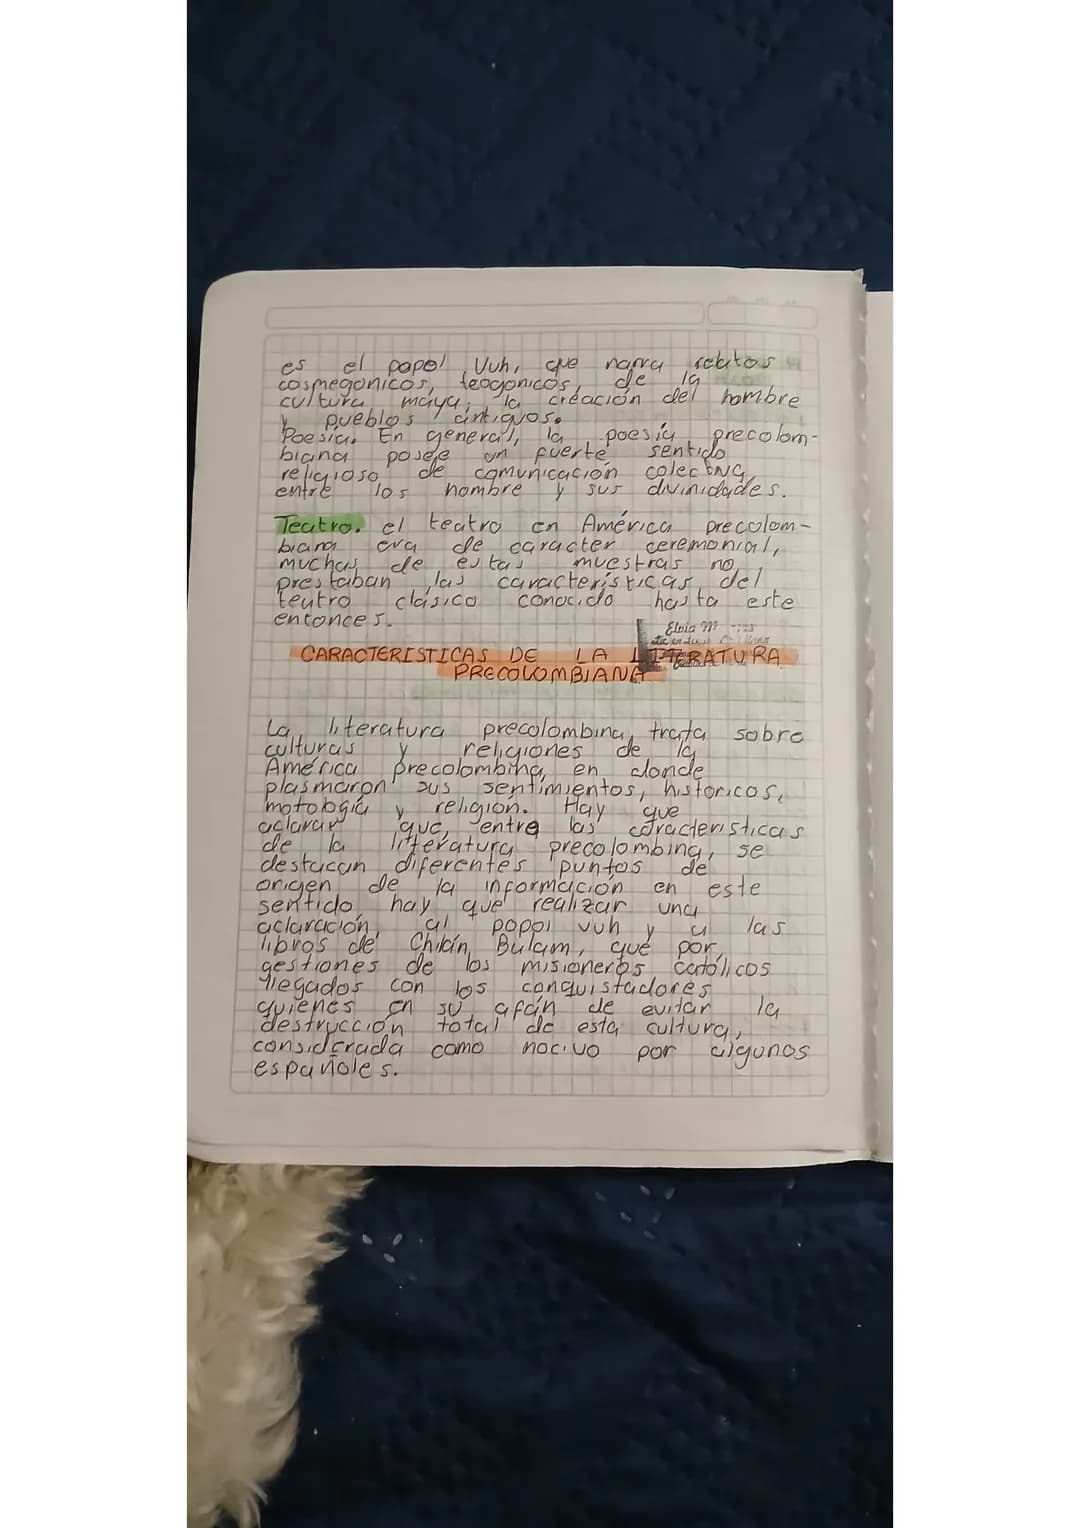 es el popol Vuh, que narra relatos
cosmegonicos, teogonicos, de la
cultura maya; la creación del hombre
y pueblos antiguos.
Poesia. En general, la poesia precolom-
biana posee un fuerte sentido
religioso de comunicación colectiva,
entre los hombre y sus divinidades.
Teatro. el teatro en América precolom-
biana era de caracter ceremonial,
muchas de estas muestras no
prestaban las características del
teutro clásico conocido hasta este
entonces.
Elvia M
CARACTERISTICAS DE LA LITERATURA
PRECOLOMBIANA
La literatura precolombina, trata sobre
culturas y religiones de la
América precolombina, en donde
plasmaron sus sentimientos, historicos,
motología y religión. Hay que
aclarar que, entre las caracteristicas
de la litteratura precolombina, se
destacan diferentes puntos de
origen de la información en este
sentido hay que realizar una
aclaración, al popol vuh y a las
libros de Chibín Bulam, que por
gestiones de los misioneros católicos
llegados con los conquistadores
quienes en su afán de evitar la
destrucción total de esta cultura,
considerada como nocivo por algunos
españoles.